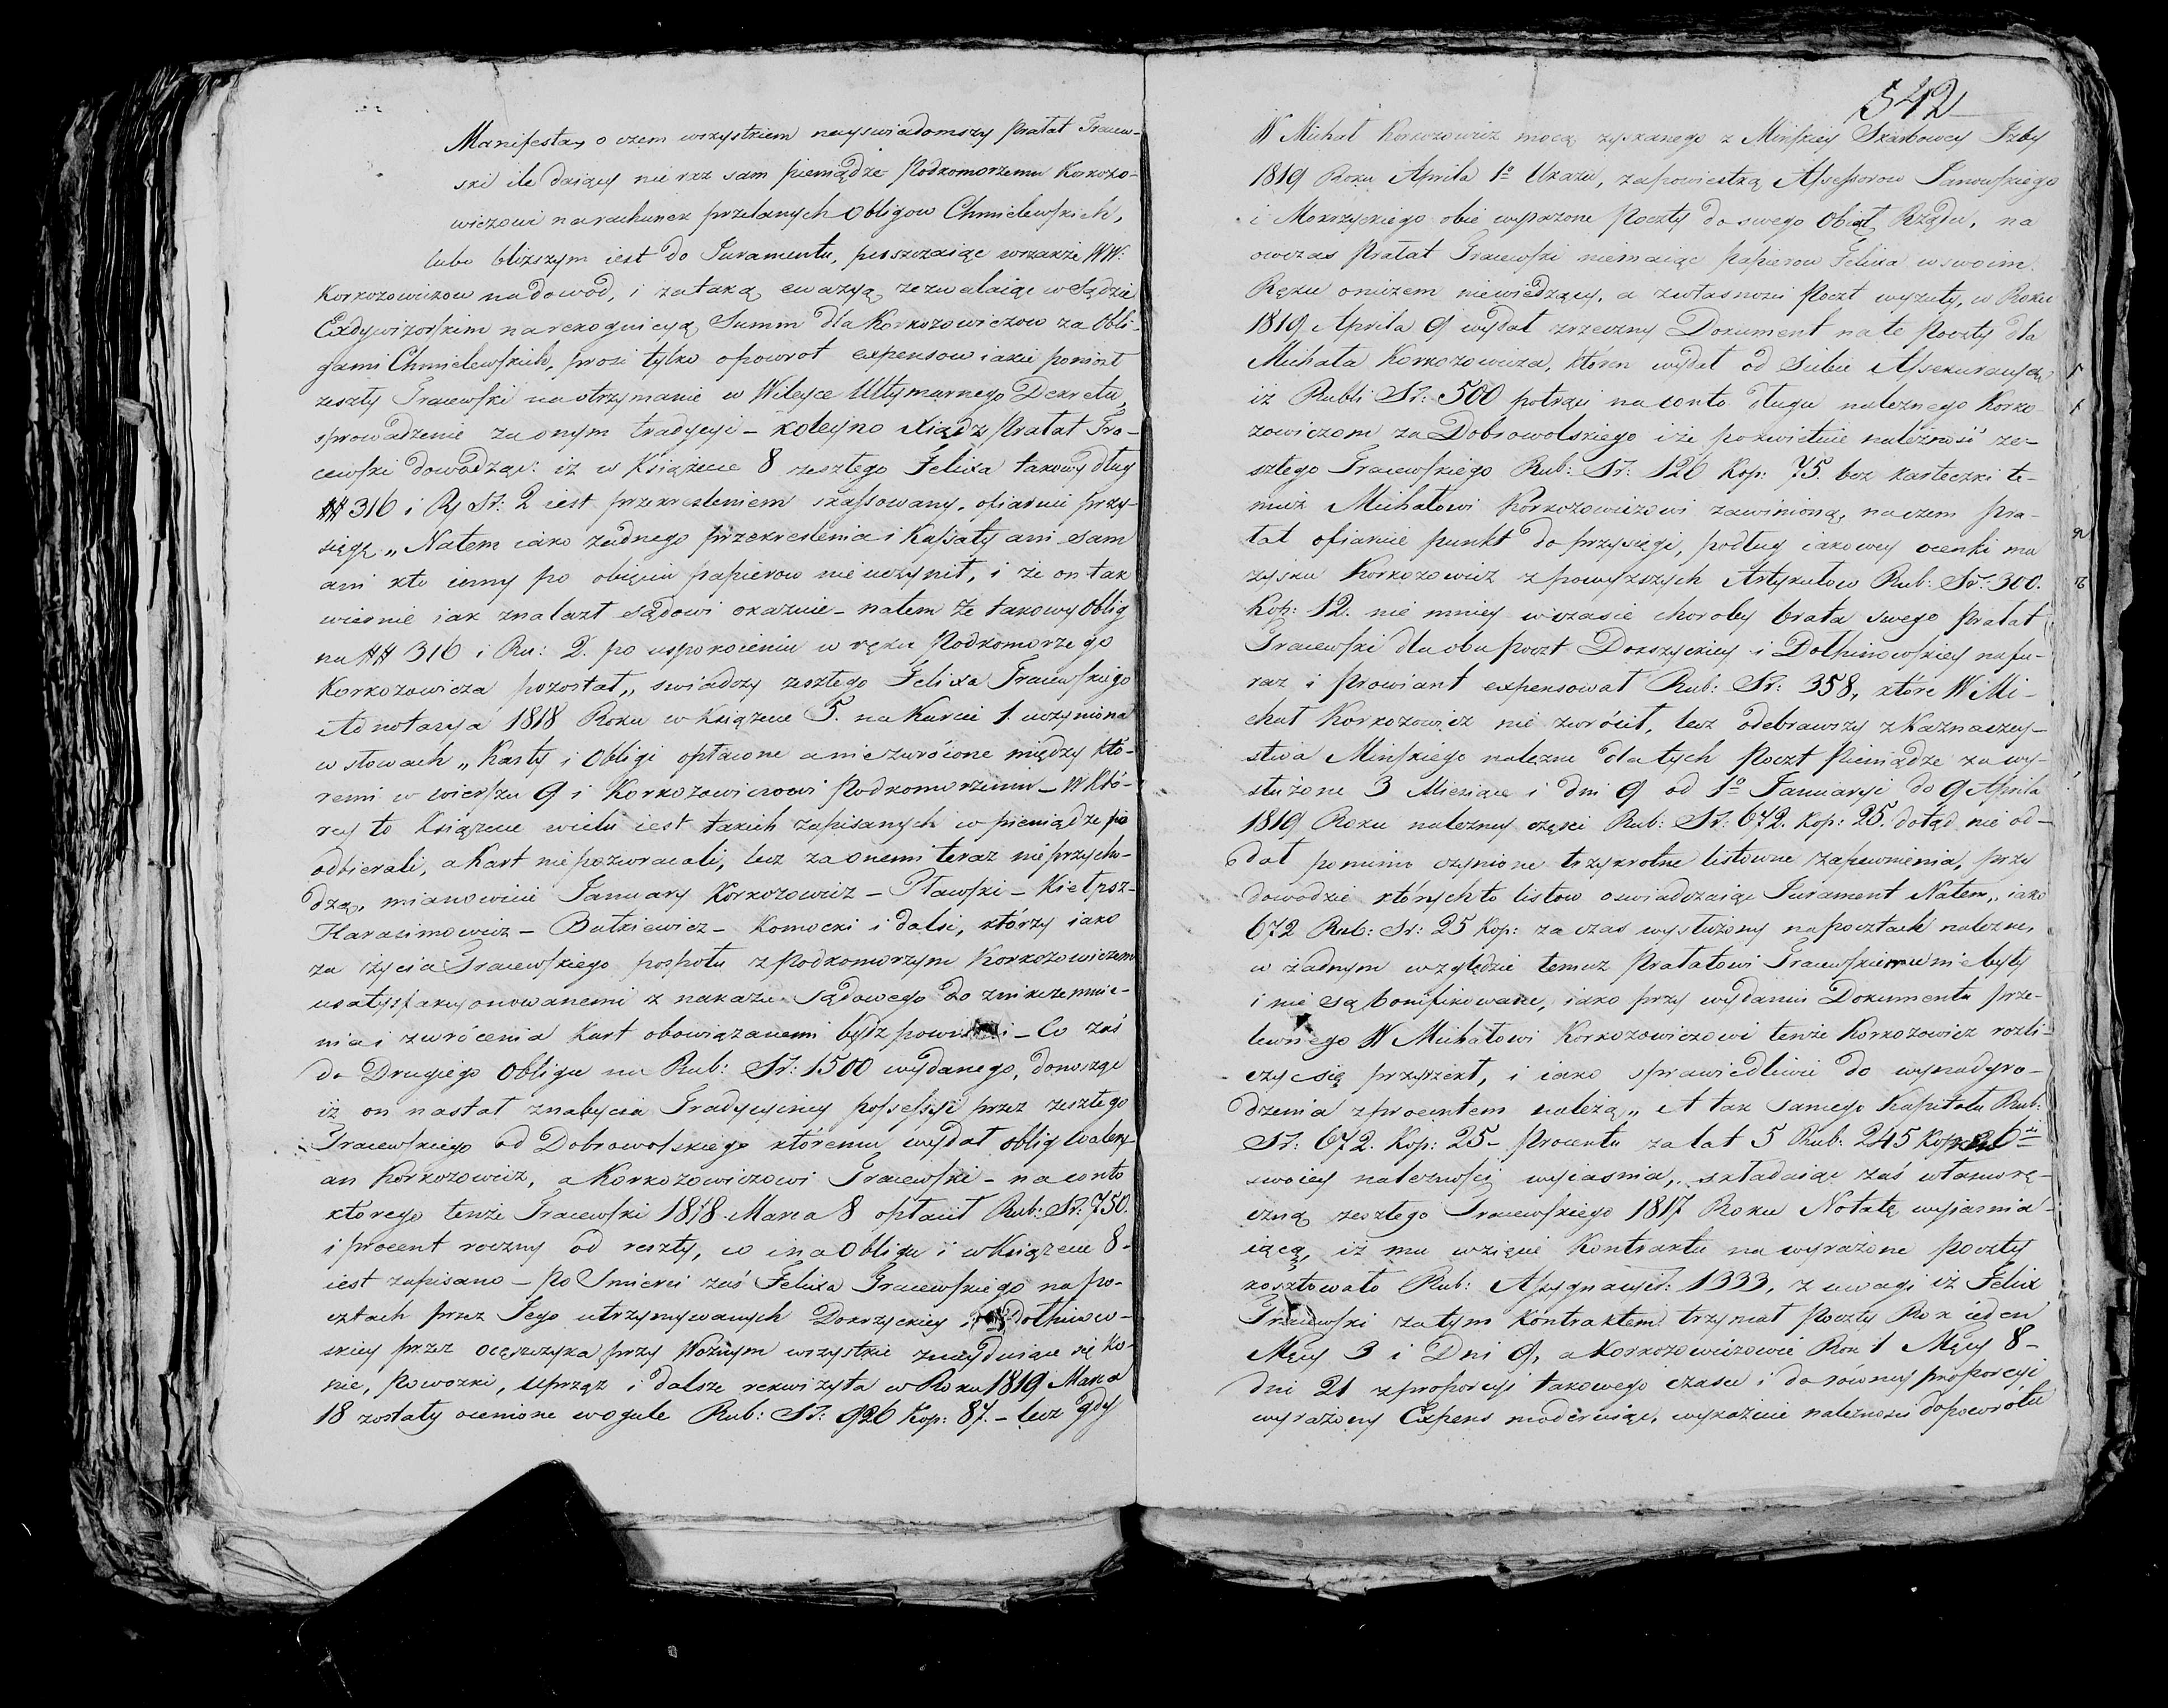 Manifesta, o czem wszystkiem nayswiadomszy Prałat Gracew-
ski ile daiący nie raz sam pieniądze Podkomorzemu Korkozo-
wiczowi narachunek przelanych Obligow Chmielewskich,
lubo bliższym iest do Juramentu, puszczaiąc wszakże WW:
Korkozowiczow nadowod, i zataką ewazyą zezwalaiąc w Sądzie
Exdywizorskim narekognicyą Summ dla Korkozowiczow za Obli-
gami Chmielewskich, prosi tylko opowrot expensow iakie poniosł
zeszły Gracewski naotrzymanie w Wileyce Ultymarnego Dekretu,
sprowadzenie zaonym tradycyi - koleyno Xiądz Prałat Gra-
cewski dowodząc: iż w Książecce 8 zeszłego Felixa takowy dług
## 316 i Rs Sr: 2 iest przekresleniem skassowany, ofiaruie przy-
sięgę „Natem iako żadnego przekreslenia i Kassaty ani sam
ani kto inny po obięciu papierow nieuczynił, i że on tak
wiernie iak znalazł sądowi okazuie - natem że takowy Oblig
na ## 316 i Ru: 2. po uspokoieniu w ręku Podkomorzego
Korkozowicza pozostał„ swiadczy zeszłego Felixa Gracewskiego
Adnotacya 1818 Roku w Książecce 5. na Karcie 1. uczyniona
w słowach „Karty i Obligi opłacone a niezwrócone między któ-
remi w wierszu 9 i Korkozowiczowi Podkomorzemu - W Któ-
rey to Książecce wielu iest takich zapisanych co pieniądze po
odbierali, a Kart niepozwracali, lecz zaonemi teraz nieprzycho-
dzą, mianowicie January Korkozowicz - Pławski - Kiełpsz -
Harasimowicz - Butkiewicz - Komocki i dalsi, którzy iako
za życia Gracewskiego pospołu z Podkomorzym Korkozowiczem
usatysfakcyonowanemi z nakazu sądowego do
nia i zwrócenia Kart obowiązanemi bydz powinni - Co zaś
do Drugiego Obligu na Rub: Sr: 1500 wydanego, donosząc
iż on nastał znabycia Tradycyiney possessyi przez zeszłego
Gracewskiego od Dobrowolskiego któremu wydał oblig Walery-
an Korkozowicz, a Korkozowiczowi Gracewski - na conto
którego tenże Gracewski 1818 Marca 8 opłacił Rub: Sr: 750.
i procent roczny od reszty, co inaObligu i wKsiążecce 8 -
iest zapisano - Po Smierci zaś Felixa Gracewskiego na po-
cztach przez Jego utrzymywanych Dokrzyckiey i dołhinow-
skiey przez ocęszczyka przy Woźnym wszystkie znayduiące się Ko-
nie, Powozki, uprząż i dalsze rekwizyta w Roku 1819 Marca
18 zostały ocenione wogule Rub: Sr: 926 Kop: 87. - lecz gdy
542
W Michał Korkozowicz mocą zyskanego z Minskiey Skarbowey Izby
1819 Roku Aprila 1º Ukazu, zapowiestką Assessorow Janowskiego
i Mokrzyckiego obie wyrażone Poczty do swego Objął Rządu, na
owczas Prałat Gracewski niemaiąc papierow Felixa w swoim
Ręku oniczem niewiedzący, a zwłasnosci Poczt wyzuty, w Roku
1819 Aprila 9 wydał zrzeczny Dokument nate Poczty dla
Michała Korkozowicza, któren wydał od Siebie Assekuracyą
iż Rubli Sr: 500 potrąci naconto długu należnego Korko-
zowiczom za Dobrowolskiego i że pokwituie należność ze-
szłego Gracewskiego Rub: Sr: 126 Kop: 75. bez karteczki te-
muż Michałowi Korkozowiczowi zawinioną, naczem Pra-
łat ofiaruie punkt do przysięgi, podług iakowey ocenki ma
zysku Korkozowicz zpowyższych Artykułow Rub: Sr: 300.
Kop: 12. nie mniey wczasie choroby brata swego Prałat
Gracewski dla obu Poczt Dokszyckiey i Dołhinowskiey nafu-
raż i Prowiant expensował Rub: Sr: 358, które W Mi-
chał Korkozowicz nie zwrócił, lecz odebrawszy z Kaznaczey-
stwa Minskiego należne dla tych Poczt Pieniądze za wy-
służone 3 Miesiące i dni 9 od 1º Januaryi do 9 Aprila
1819 Roku należney części Rub: Sr: 672. Kop: 25. dotąd nie od-
dał pomimo czynione trzykrotne listowne zapewnienia, przy
dowodzie których to listow oswiadczaiąc Jurament Natem „iako
672 Rub: Sr: 25 Kop: za czas wysłużony napocztach należne,
w żadnym względzie temuż Prałatowi Gracewskiemu niebyły
i nie są bonifikowane, iako przy wydaniu Dokumentu prze-
lewnego W Michałowi Korkozowiczowi tenże Korkozowicz rozli-
czyc się przyrzekł, i iako sprawiedliwie do wynadgro-
dzenia zprocentem należą„ A tak samego Kapitału Rub:
Sr: 672. Kop: 25 - Procentu za lat 5 Rub: 245 Kop:
swoiey należnosci wyiasnia, składaiąc zaś własnorę-
czną zeszłego Gracewskiego 1817 Roku Notatę wyiasnia-
iącą, iż mu wzięcie Kontraktu na wyrażone poczty
kosztowało Rub: Assygnacyi: 1333, z uwagi iż Felix
Gracewski zatym Kontraktem trzymał Poczty Rok ieden
Męcy 3 i Dni 9, a Korkozowiczowie Rok 1 Męcy 8 -
dni 21 zproporcyi takowego czasu i do równey proporcyi
wyrażony Expens moderuiąc, wykazuie należnosci dopowrótu